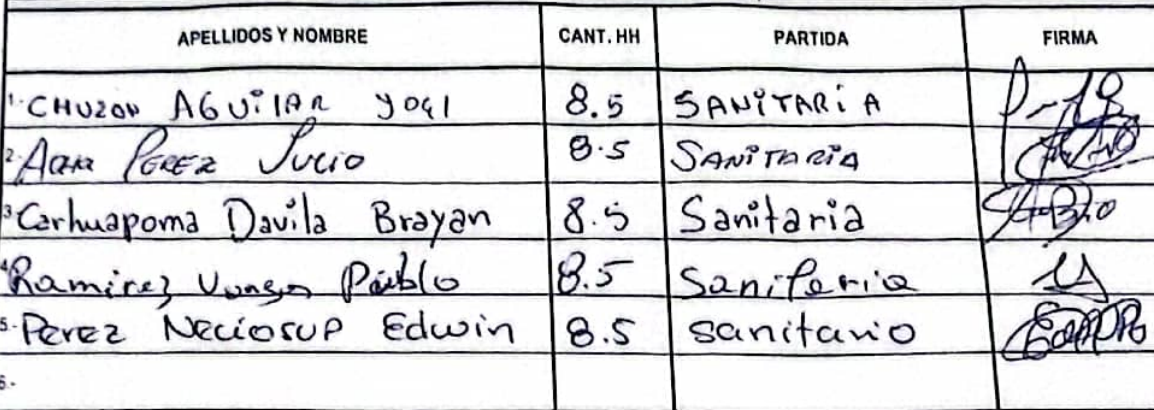 APELLIDOS Y NOMBRE CANT. HH PARTIDA FIRMA
1. CHUZON AGUiLAR YOEL 8.5 SANiTARiA
2. PEREZ JULIO 8.5 SANITARIA
3. Carhuapoma Davila Brayan 8.5 Sanitaria
4. Ramirez Pablo 8.5 Sanitaria
5.- Perez Neciosup Edwin 8.5 sanitario
6.-